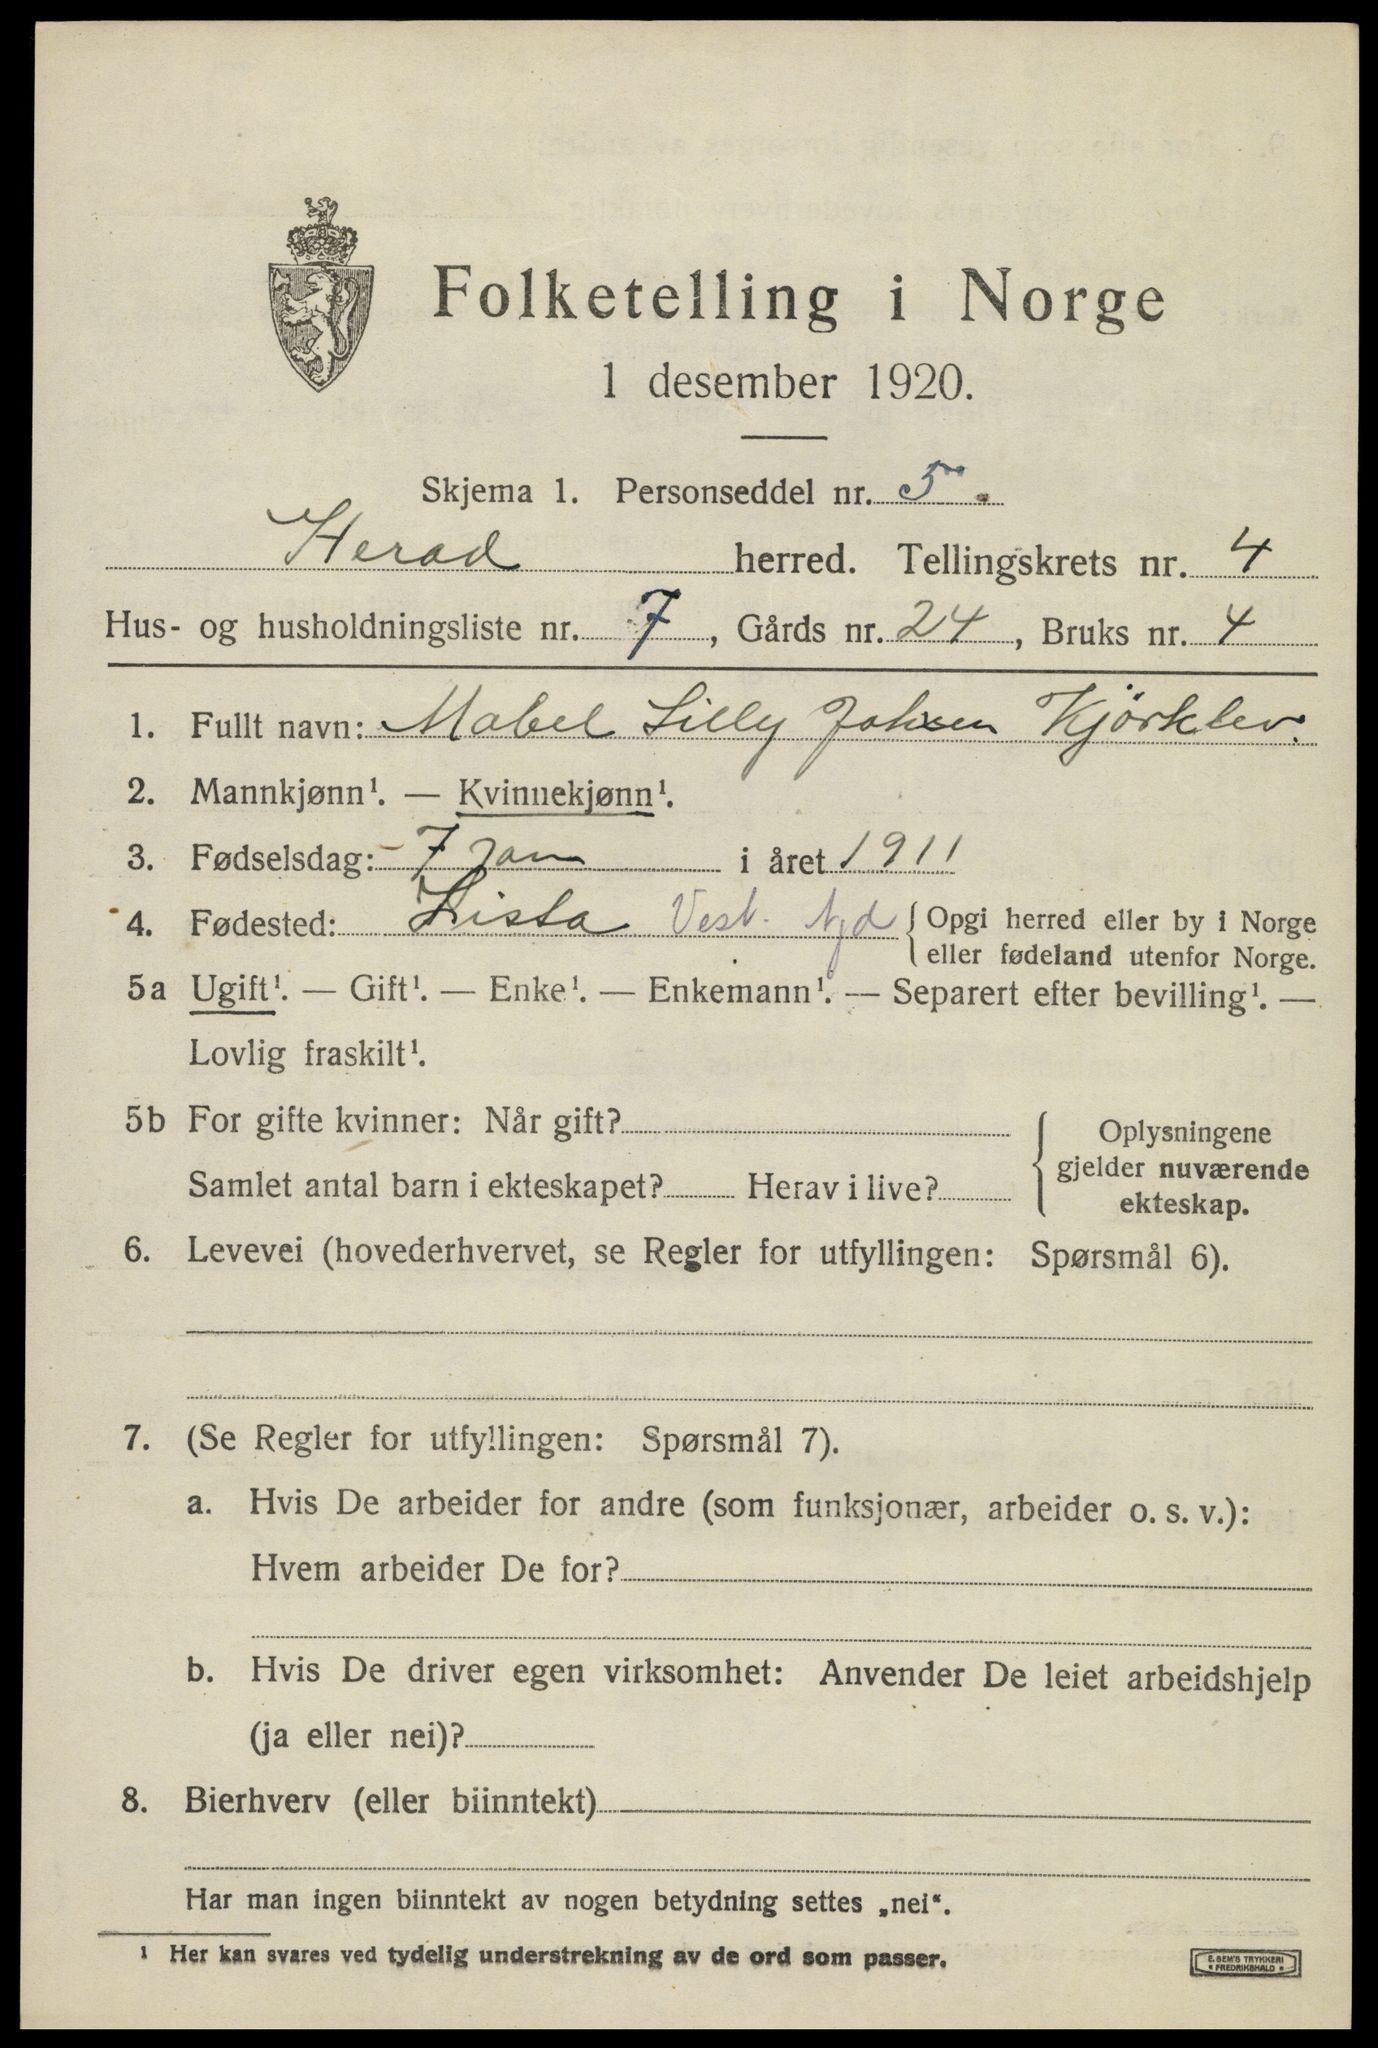 Folketelling i Norge
1 desember 1920.
Skjema 1. Personseddel nr. 5.
Herad herred. Tellingskrets nr. 4
Hus- og husholdningsliste nr. 7, Gårds nr. 24, Bruks nr. 4
1. Fullt navn: Mabel Lilly Johsen Kjörklev.
2. Mannkjønn¹. — Kvinnekjønn¹.
3. Fødselsdag: 7 jan i året 1911
4. Fødested: Lista Vest. Agd { Opgi herred eller by i Norge
eller fødeland utenfor Norge.
5a Ugift¹. — Gift¹. — Enke¹. — Enkemann¹. — Separert efter bevilling¹. —
Lovlig fraskilt¹.
5b For gifte kvinner: Når gift?
Samlet antal barn i ekteskapet? Herav i live?
Oplysningene
gjelder nuværende
ekteskap.
6. Levevei (hovederhvervet, se Regler for utfyllingen: Spørsmål 6).
7. (Se Regler for utfyllingen: Spørsmål 7).
a. Hvis De arbeider for andre (som funksjonær, arbeider o. s. v.):
Hvem arbeider De for?
b. Hvis De driver egen virksomhet: Anvender De leiet arbeidshjelp
(ja eller nei)?
8. Bierhverv (eller biinntekt)
Har man ingen biinntekt av nogen betydning settes „nei“.
¹ Her kan svares ved tydelig understrekning av de ord som passer.
E. SEM'S TRYKKERI
• FREDRIKSHALD •